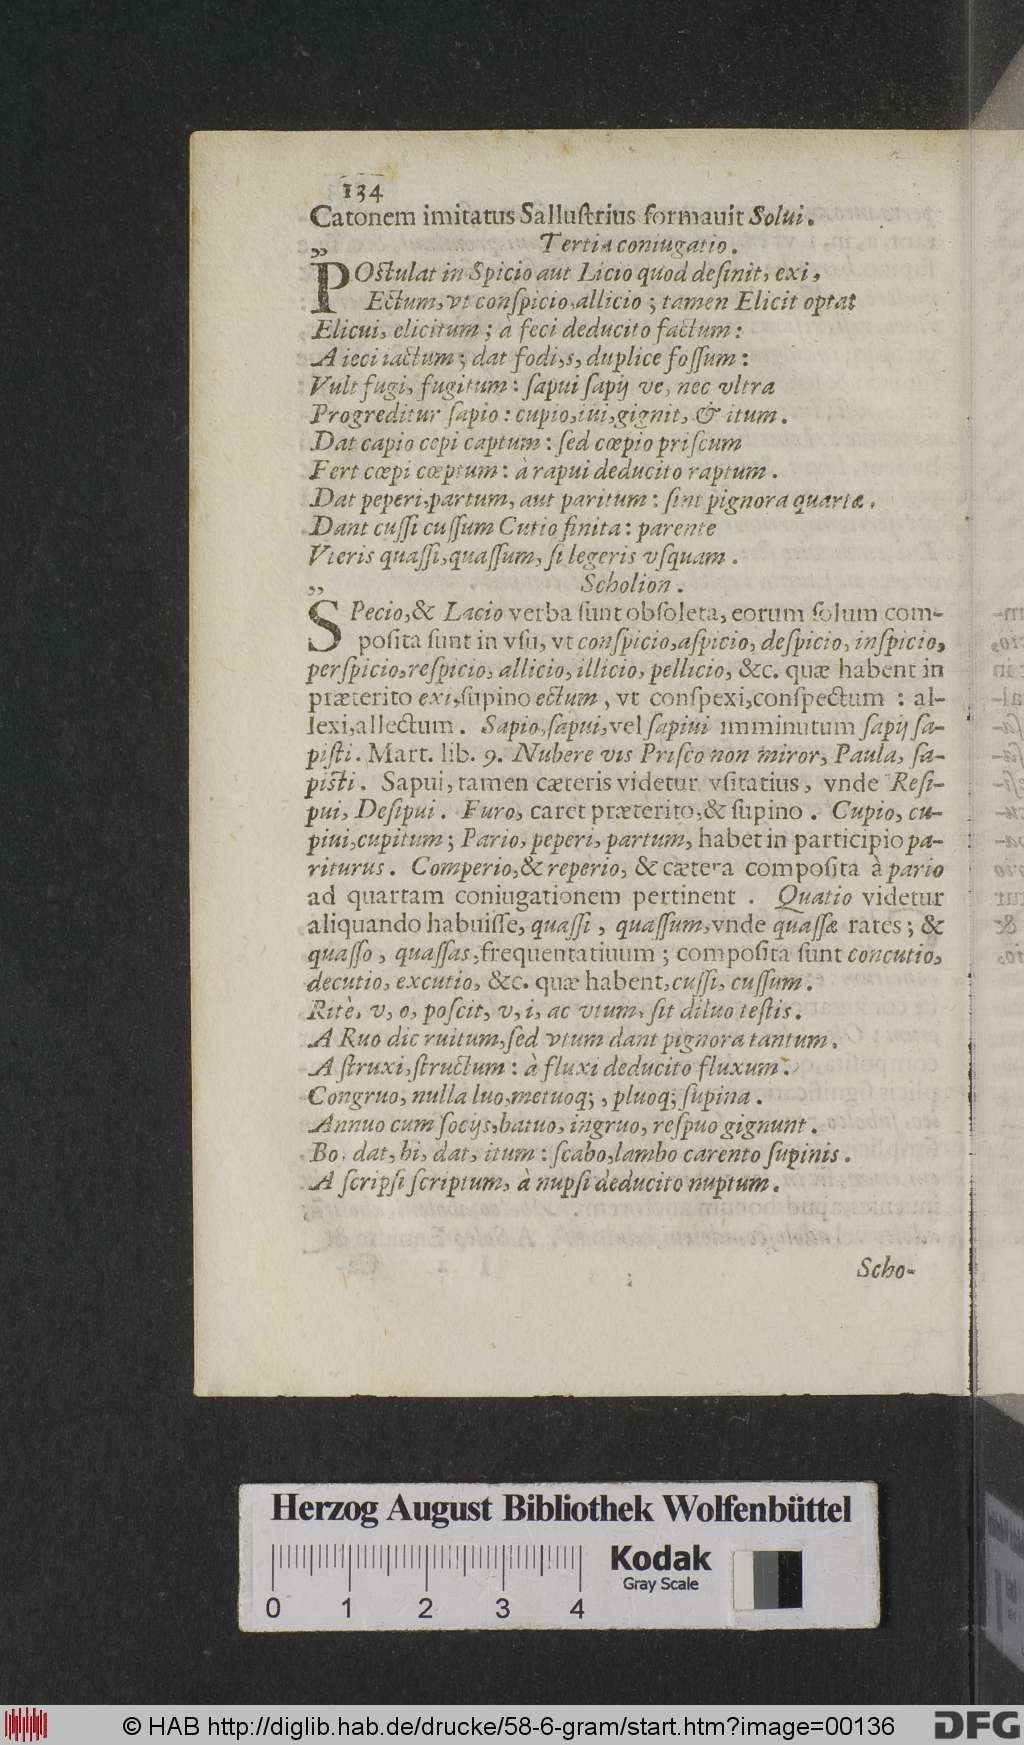 134
Catonem imitatus Sallustrius formauit Solui.
Tertia coniugatio.
„
POstulat in Spicio aut Licio quod desinit, exi,
Ectum, vt conspicio, allicio; tamen Elicit optat
Elicui, elicitum; à feci deducito factum:
A ieci iactum; dat fodi, s, duplice fossum:
Vult fugi, fugitum: sapui sapij ve, nec vltra
Progreditur sapio: cupio, iui, gignit, & itum.
Dat capio cepi captum: sed cœpio priscum
Fert cœpi cœptum: à rapui deducito raptum.
Dat peperi, partum, aut paritum: sint pignora quartæ.
Dant cussi cussum Cutio finita: parente
Vteris quassi, quassum, si legeris vsquam.
Scholion.
„
SPecio, & Lacio verba sunt obsoleta, eorum solum com-
posita sunt in vsu, vt conspicio, aspicio, despicio, inspicio,
perspicio, respicio, allicio, illicio, pellicio, &c. quæ habent in
præterito exi, supino ectum, vt conspexi, conspectum: al-
lexi, allectum. Sapio, sapui, vel sapiui imminutum sapij sa-
pisti. Mart. lib. 9. Nubere vis Prisco non miror, Paula, sa-
pisti. Sapui, tamen cæteris videtur vsitatius, vnde Resi-
pui, Desipui. Furo, caret præterito, & supino. Cupio, cu-
piui, cupitum; Pario, peperi, partum, habet in participio pa-
riturus. Comperio, & reperio, & cætera composita à pario
ad quartam coniugationem pertinent. Quatio videtur
aliquando habuisse, quassi, quassum, vnde quassæ rates; &
quasso, quassas, frequentatiuum; composita sunt concutio,
decutio, excutio, &c. quæ habent, cussi, cussum.
Ritè, v, o, poscit, v, i, ac vtum, sit diluo testis.
A Ruo dic ruitum, sed vtum dant pignora tantum.
A struxi, structum: à fluxi deducito fluxum.
Congruo, nulla luo, metuoq;, pluoq; supina.
Annuo cum socijs, batuo, ingruo, respuo gignunt.
Bo. dat, bi, dat, itum: scabo, lambo carento supinis.
A scripsi scriptum, à nupsi deducito nuptum.
Scho-
Herzog August Bibliothek Wolfenbüttel
Kodak
Gray Scale
0 1 2 3 4
© HAB http://diglib.hab.de/drucke/58-6-gram/start.htm?image=00136
DFG